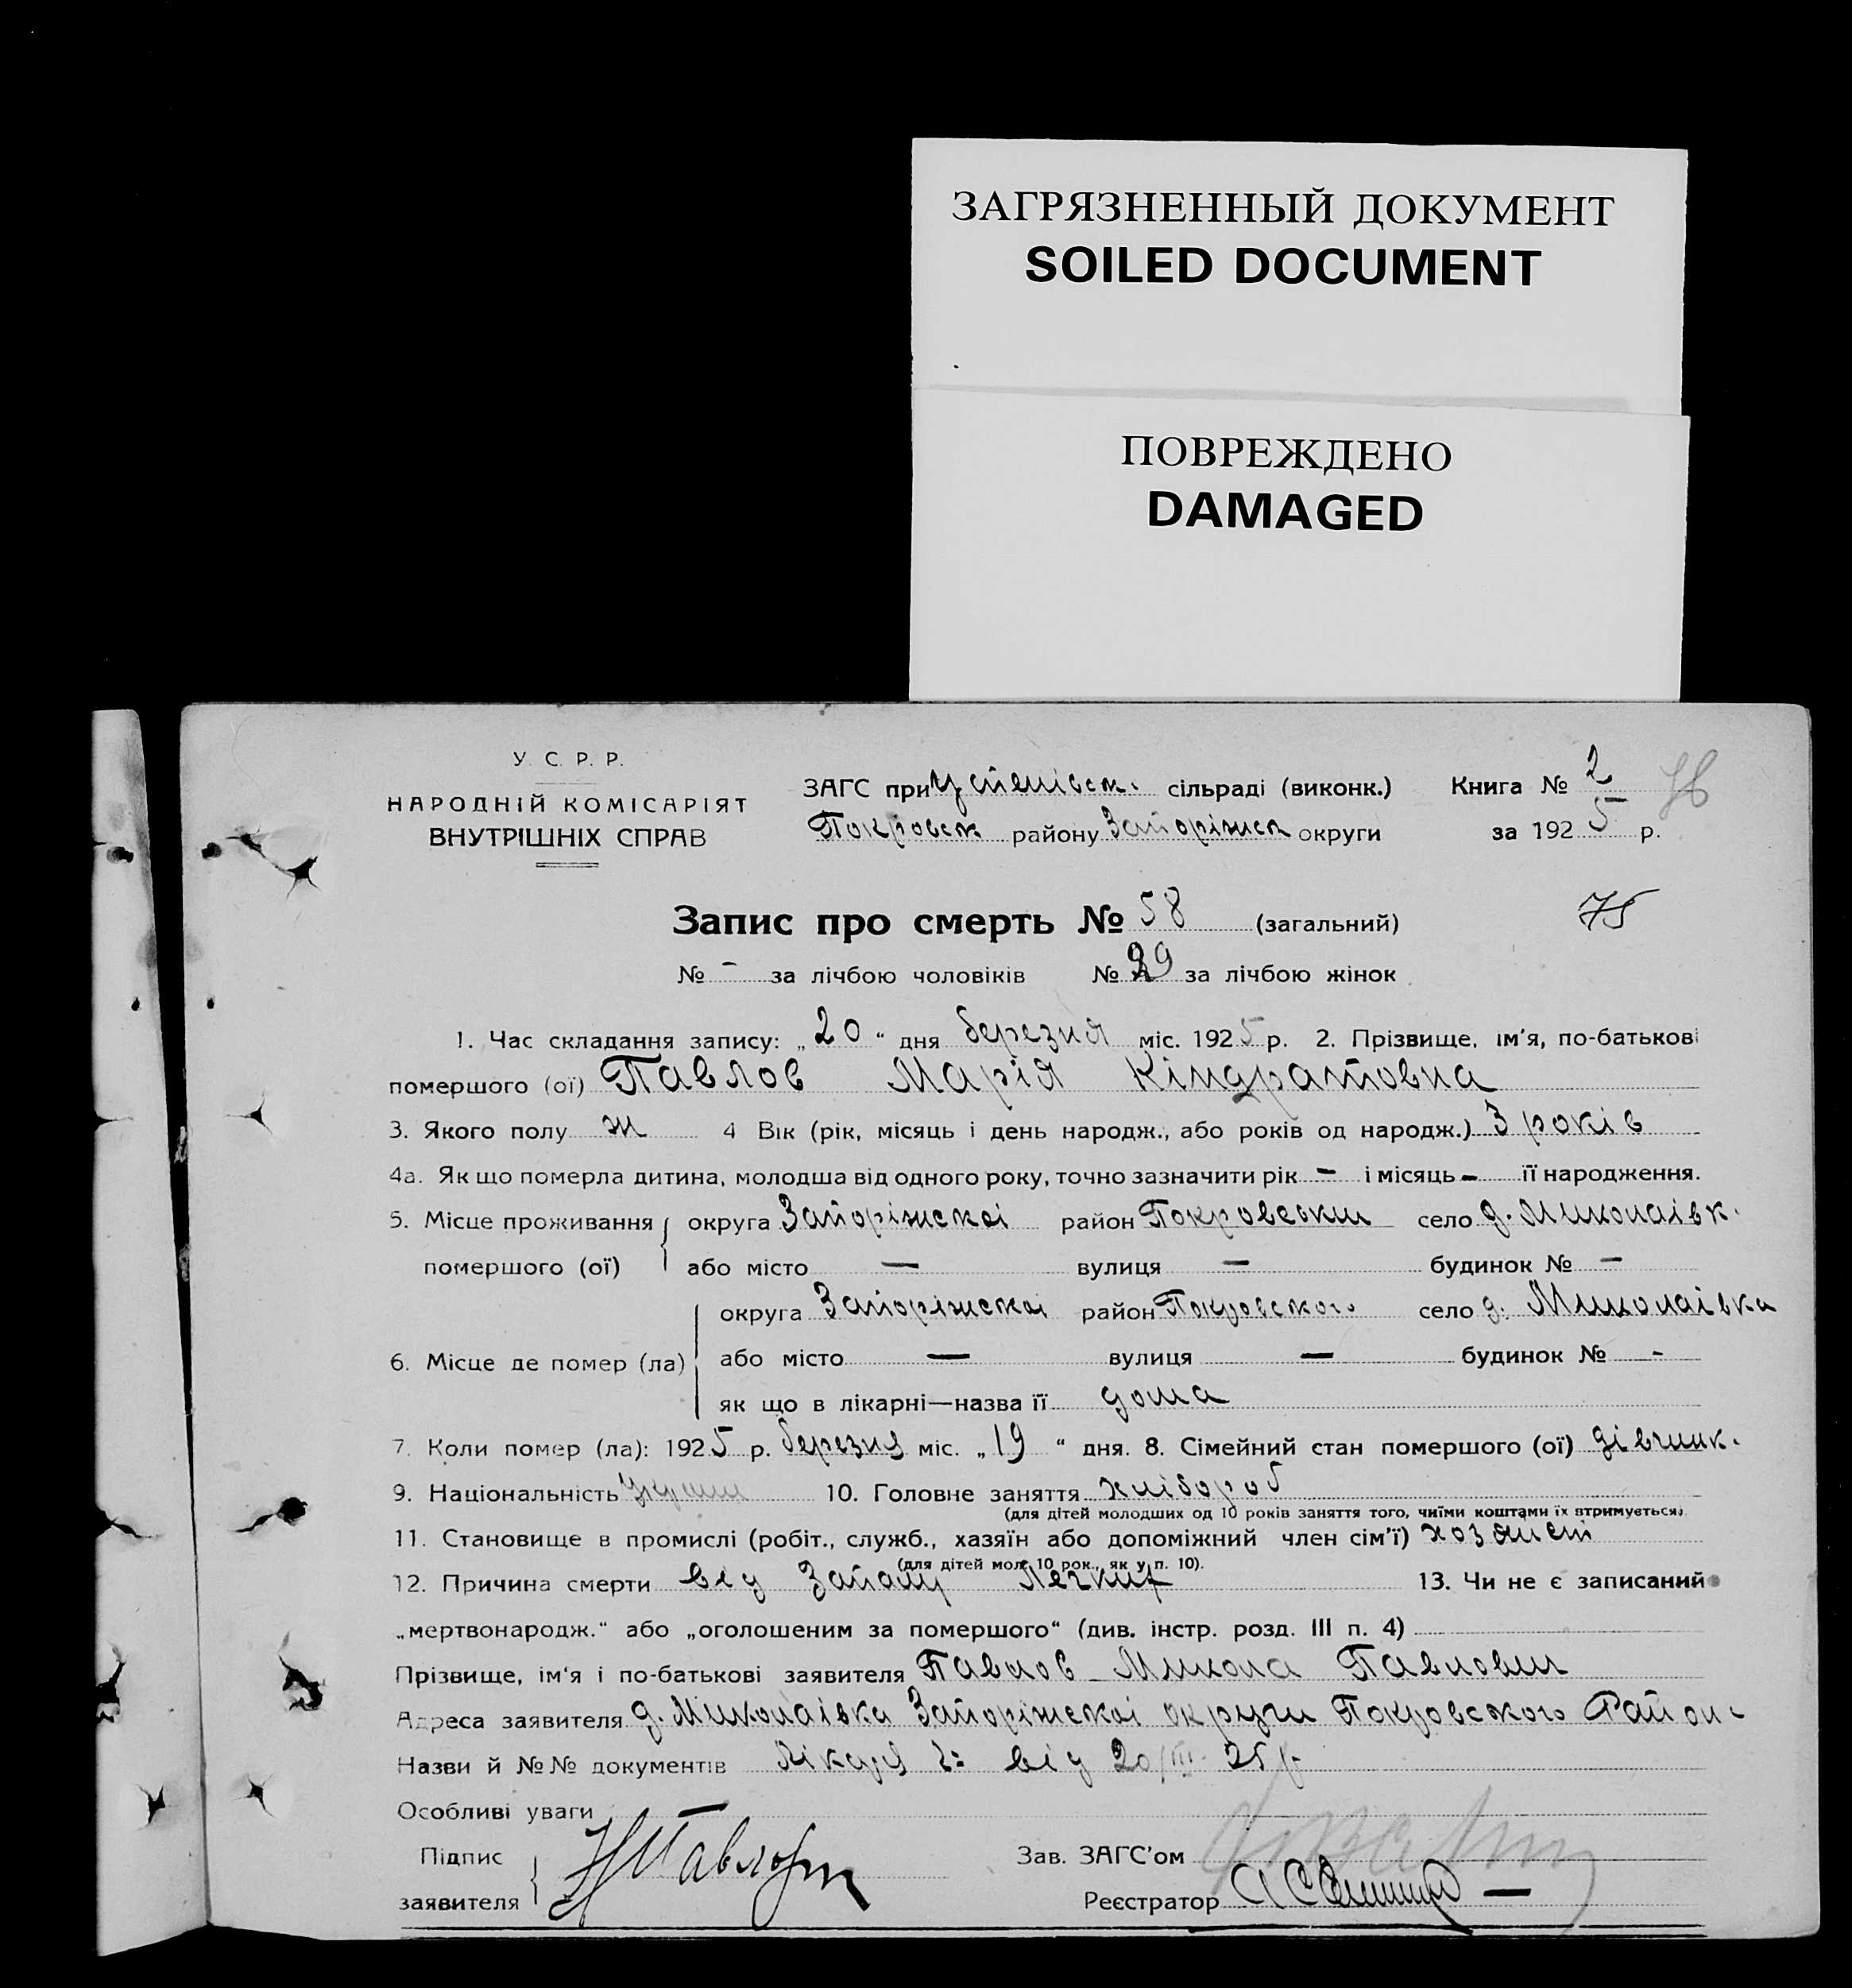 ЗАГРЯЗНЕННЫЙ ДОКУМЕНТ
SOILED DOCUMENT
ПОВРЕЖДЕНО
DAMAGED
У. С. Р. Р.
НАРОДНІЙ КОМІСАРІЯТ
ВНУТРІШНІХ СПРАВ
ЗАГС при Успенівськ. сільраді (виконк.)
Покровськ району Запоріжск округи
Книга № 2
за 1925 р.
75
Запис про смерть № 58 (загальний)
№ - за лічбою чоловіків № 29 за лічбою жінок
1. Час складання запису: „20“ дня березня міс. 1925 р. 2. Прізвище, ім'я, по-батькові
помершого (ої) Павлов Марія Кіндратовна
3. Якого полу ж 4 Вік (рік, місяць і день народж., або років од народж.) 3 років
4а. Як що померла дитина, молодша від одного року, точно зазначити рік - і місяць - її народження.
5. Місце проживання помершого (ої) округа Запоріжскої район Покровськи село д. Миколаівк.
або місто — вулиця — будинок № —
6. Місце де помер (ла) округа Запоріжскої район Покровского село д. Миколаівка
або місто — вулиця — будинок № -
як що в лікарні—назва її дома
7. Коли помер (ла): 1925 р. березня міс. „19“ дня. 8. Сімейний стан помершого (ої) дівчинк.
9. Національність 10. Головне заняття хлібороб
(для дітей молодших од 10 років заняття того, чиїми коштами їх втримується)
11. Становище в промислі (робіт., служб., хазяїн або допоміжний член сім'ї)
(для дітей мол. 10 рок., як у п. 10).
12. Причина смерти від Запалу Легких 13. Чи не є записаний
„мертвонародж.“ або „оголошеним за помершого“ (див. інстр. розд. III п. 4)
Прізвище, ім'я і по-батькові заявителя Павлов Микола Павлович
Адреса заявителя д. Миколаівка Запоріжскої округи Покровского Район
Назви й №№ документів від 20/III 25 р.
Особливі уваги —
Підпис заявителя
Зав. ЗАГС'ом
Реєстратор